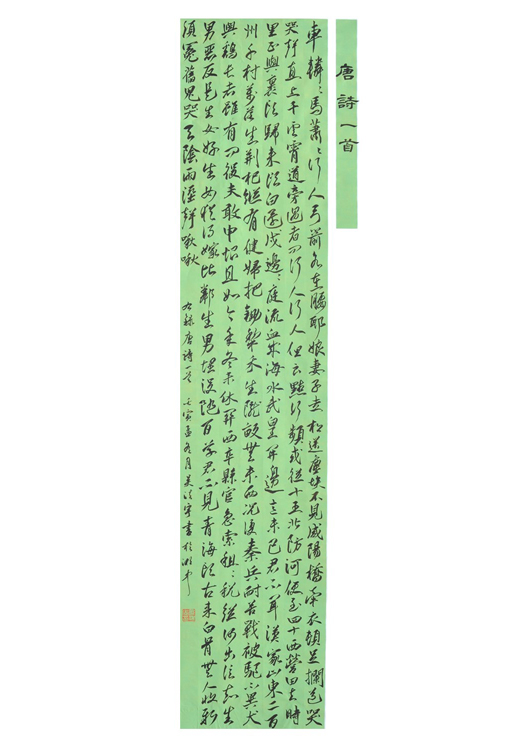 唐詩一首
車轔〻馬蕭〻行人弓箭各在腰耶娘妻子走相送塵埃不見咸陽橋牽衣頓足攔道哭
哭聲直上干雲霄道旁過者问行人行人但云點行頻或從十五北防河便至四十西營田去時
里正與裹头歸來头白還戍邊〻庭流血成海水武皇開邊意未已君不聞漢家山東二百
州千村萬落生荆杞縱有健婦把鋤犂禾生隴畝無東西況復秦兵耐苦戰被驅不異犬
與鷄長者雖有问役夫敢申恨且如今年冬未休關西卒縣官急索租〻稅從何出信知生
男惡反是生女好生女猶得嫁比鄰生男埋沒隨百草君不見青海头古來白骨無人收新
煩冤舊鬼哭天陰雨溼聲啾啾
右録唐詩一首 壬寅孟冬月吴 寧書於湖